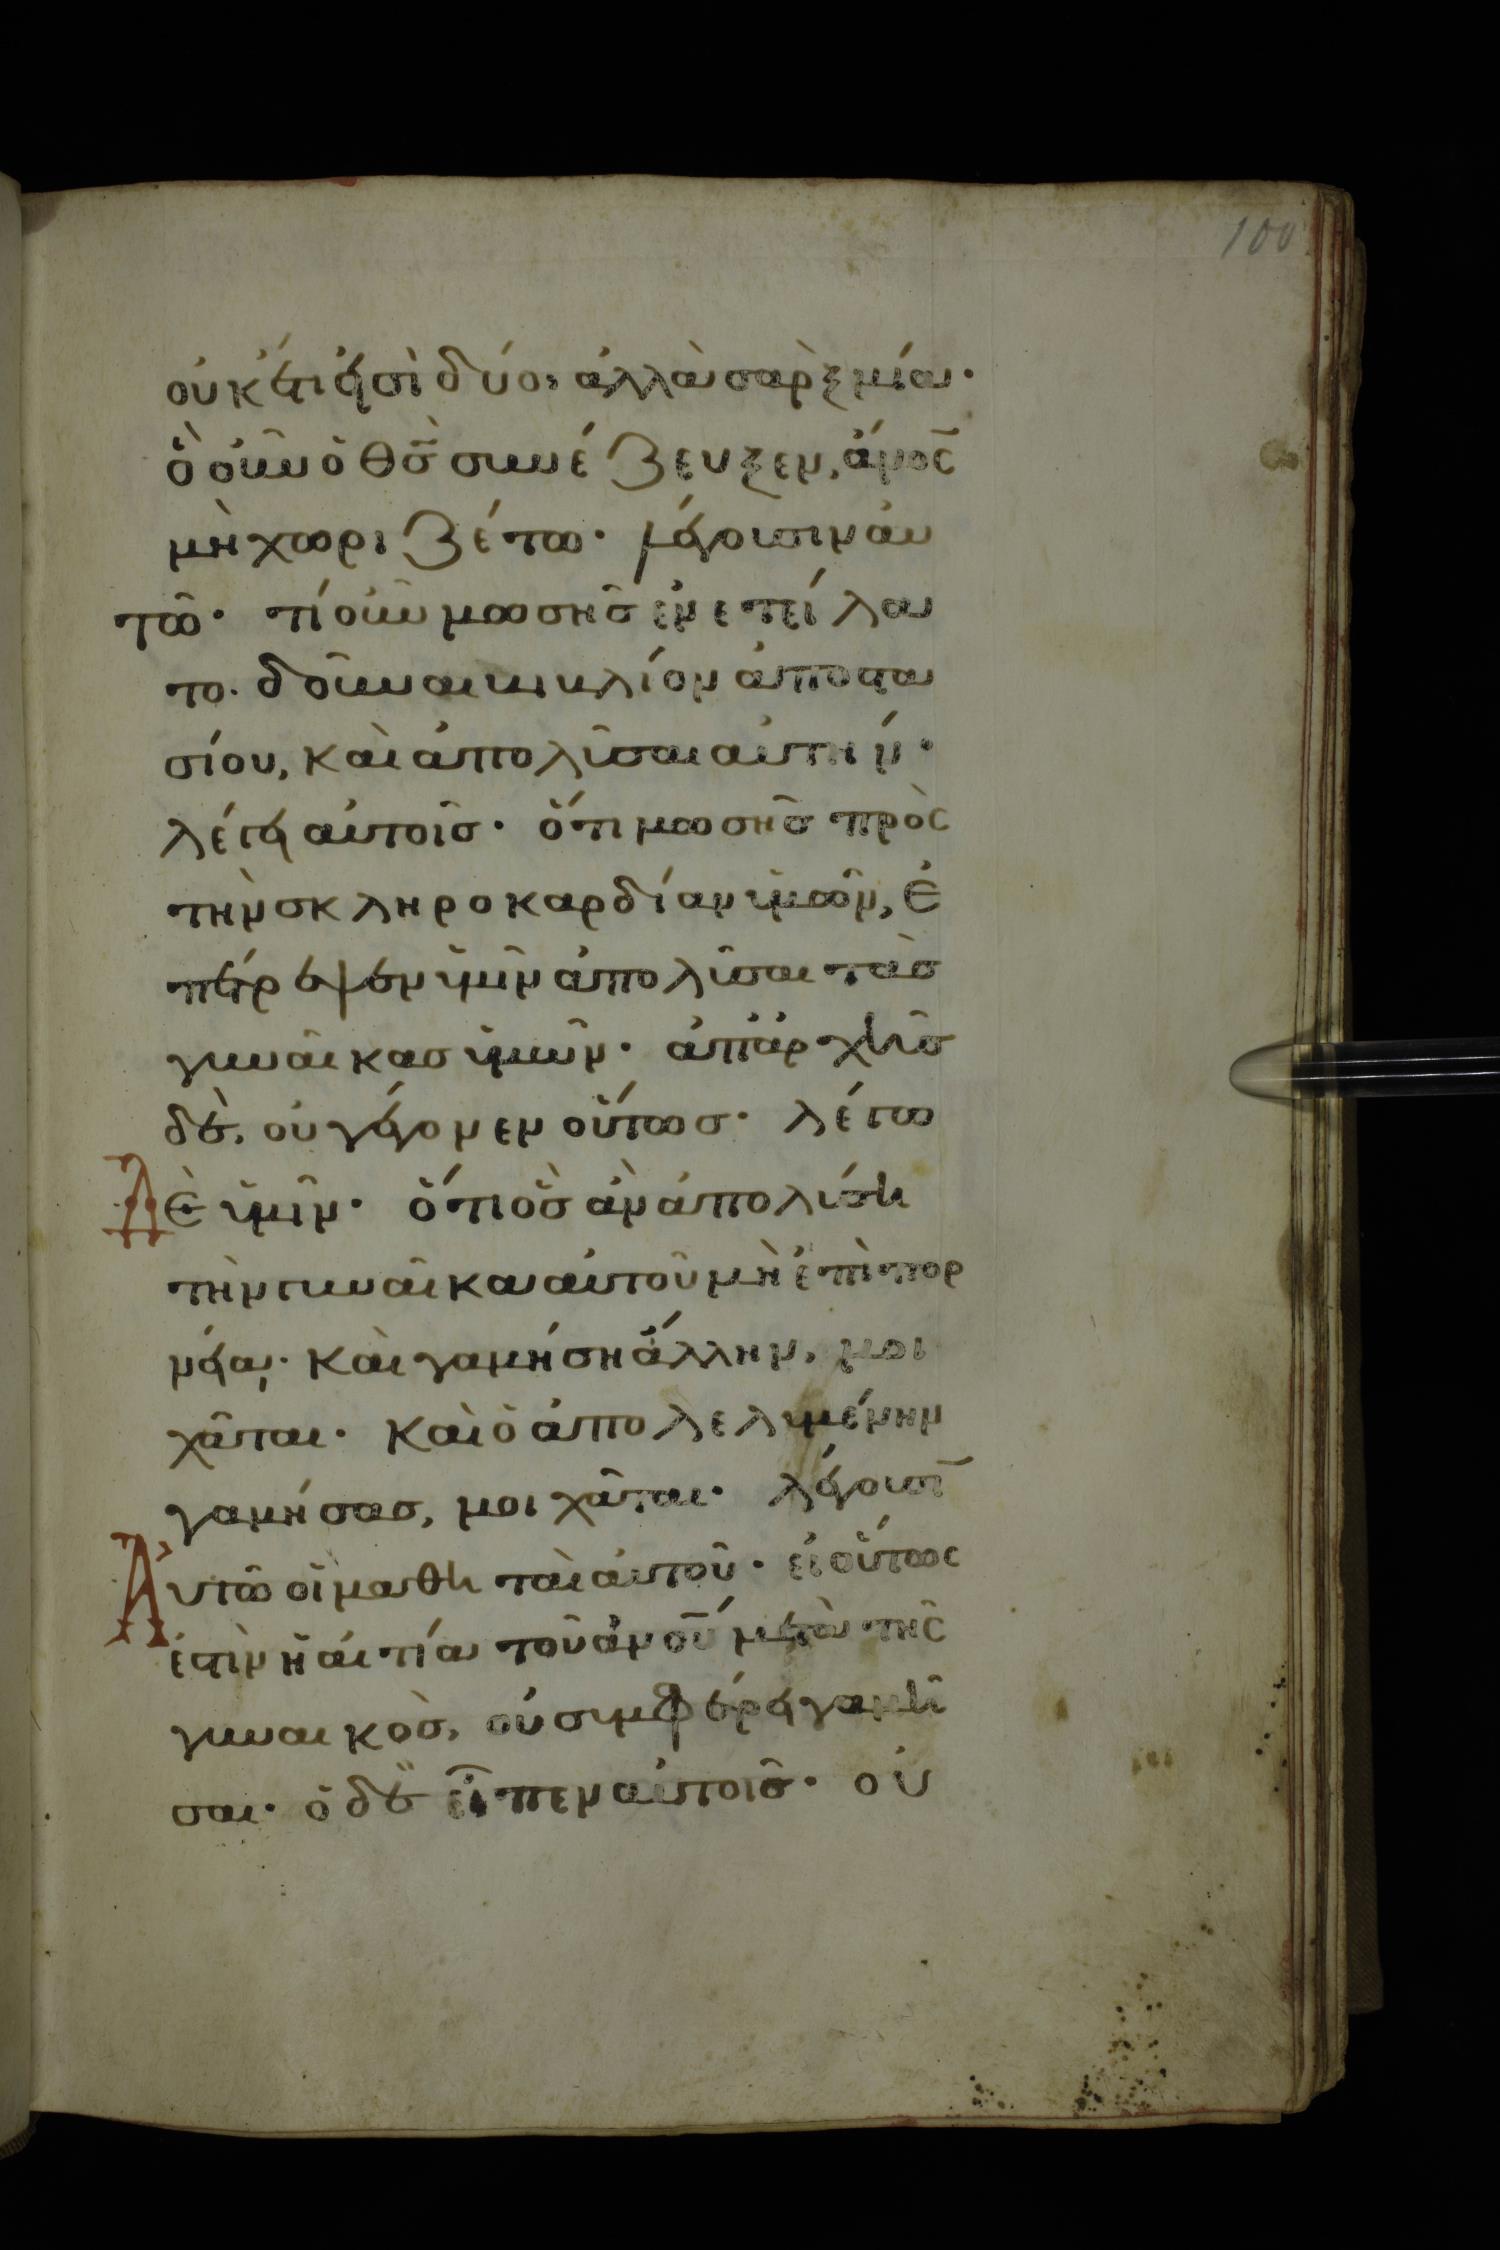 100
οὐκέτι εἰσὶ δύο, ἀλλὰ σὰρξ μία·
ὃ οὖν ὁ θ̅ς̅ συνέζευξεν, ἄνο̅ς̅
μὴ χωριζέτω· λέγουσιν αὐ
τῶ· τί οὖν μωσῆς ἐνετείλα
το· δοῦναι βιβλίον ἀποστα
σίου, καὶ ἀπολῦσαι αὐτήν·
λέγει αὐτοῖς· ὅτι μωσῆς πρὸς
τὴν σκληροκαρδίαν ὑμῶν, ἐ
πέτρεψεν ὑμῖν ἀπολῦσαι τὰς
γυναῖκας ὑμῶν· ἀπ' ἀρχῆς
δὲ, οὐ γέγονεν οὕτως· λέγω
Δὲ ὑμῖν· ὅτι ὃς ἂν ἀπολύση
τὴν γυναῖκα αὐτοῦ μὴ ἐπὶ πορ
νεία· καὶ γαμήση ἄλλην, μοι
χᾶται· καὶ ὁ ἀπολελυμένην
γαμήσας, μοιχᾶται· λέγουσι̅
Αὐτῶ οἱ μαθηταὶ αὐτοῦ· εἰ οὕτως
ἐστὶν ἡ αἰτία τοῦ ἀνο̅υ̅ μετὰ τῆς
γυναικὸς, οὐ συμφέρει γαμῆ
σαι· ὁ δὲ εἶπεν αὐτοῖς· οὐ